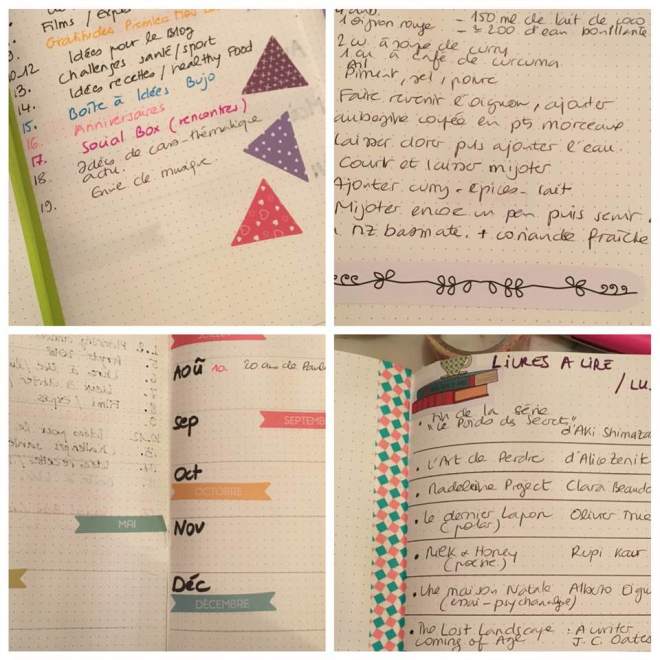 Films / Expos
Gratitudes Premier
9.
10-12 Idées pour le Blog
13. Challenges santé/sport
14. Idées recettes/healthy Food
15. Boîte à Idées Bujo
16. Anniversaires
17. Social Box (rencontres)
18. Idées de
actu.
19. Envie de musique.
1 oignon rouge
- 150 ml de lait de coco
- ± 200 d'eau bouillante
2 cu. à soupe de curry
1 cu à café de curcuma
Piment, sel, poivre
Faire revenir l'oignon, ajouter
aubergine coupée en pts morceaux
Laisser dorer puis ajouter l'eau.
Couvrir et laisser mijoter
Ajouter curry - épices - lait
Mijoter encore un peu puis servir.
RIZ basmati. + coriandre fraîche
MAI
AOÛ 10 20 ans de
Sep
SEPTEMB
Oct
OCTOBRE
Nov
Déc
DÉCEMBRE
LIVRES A LIRE
/ LU
• fin de la série
"Le Poids des Secrets"
d'Aki Shimaza
• L'Art de Perdre d'Alice Zenit
• Madeleine Project Clara Beaudo
• Le dernier Lapon Olivier True
(polar)
• Milk & Honey Rupi Kaur
(poésie.)
• Une maison Natale Alberto Eigu
(essai - psychanalyse)
• The Lost Landscape : A writer
coming of Age J. C. Oates